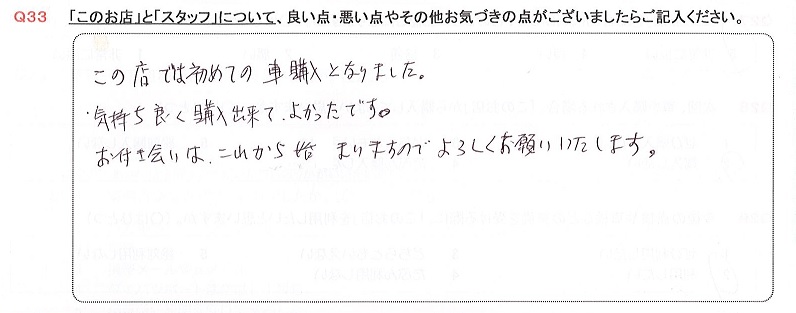 Q33 「このお店」と「スタッフ」について、良い点・悪い点やその他お気づきの点がございましたらご記入ください。
この店では初めての車購入となりました。
気持ち良く購入出来て、よかったです。
お付き合いは、これから始まりますのでよろしくお願いいたします。